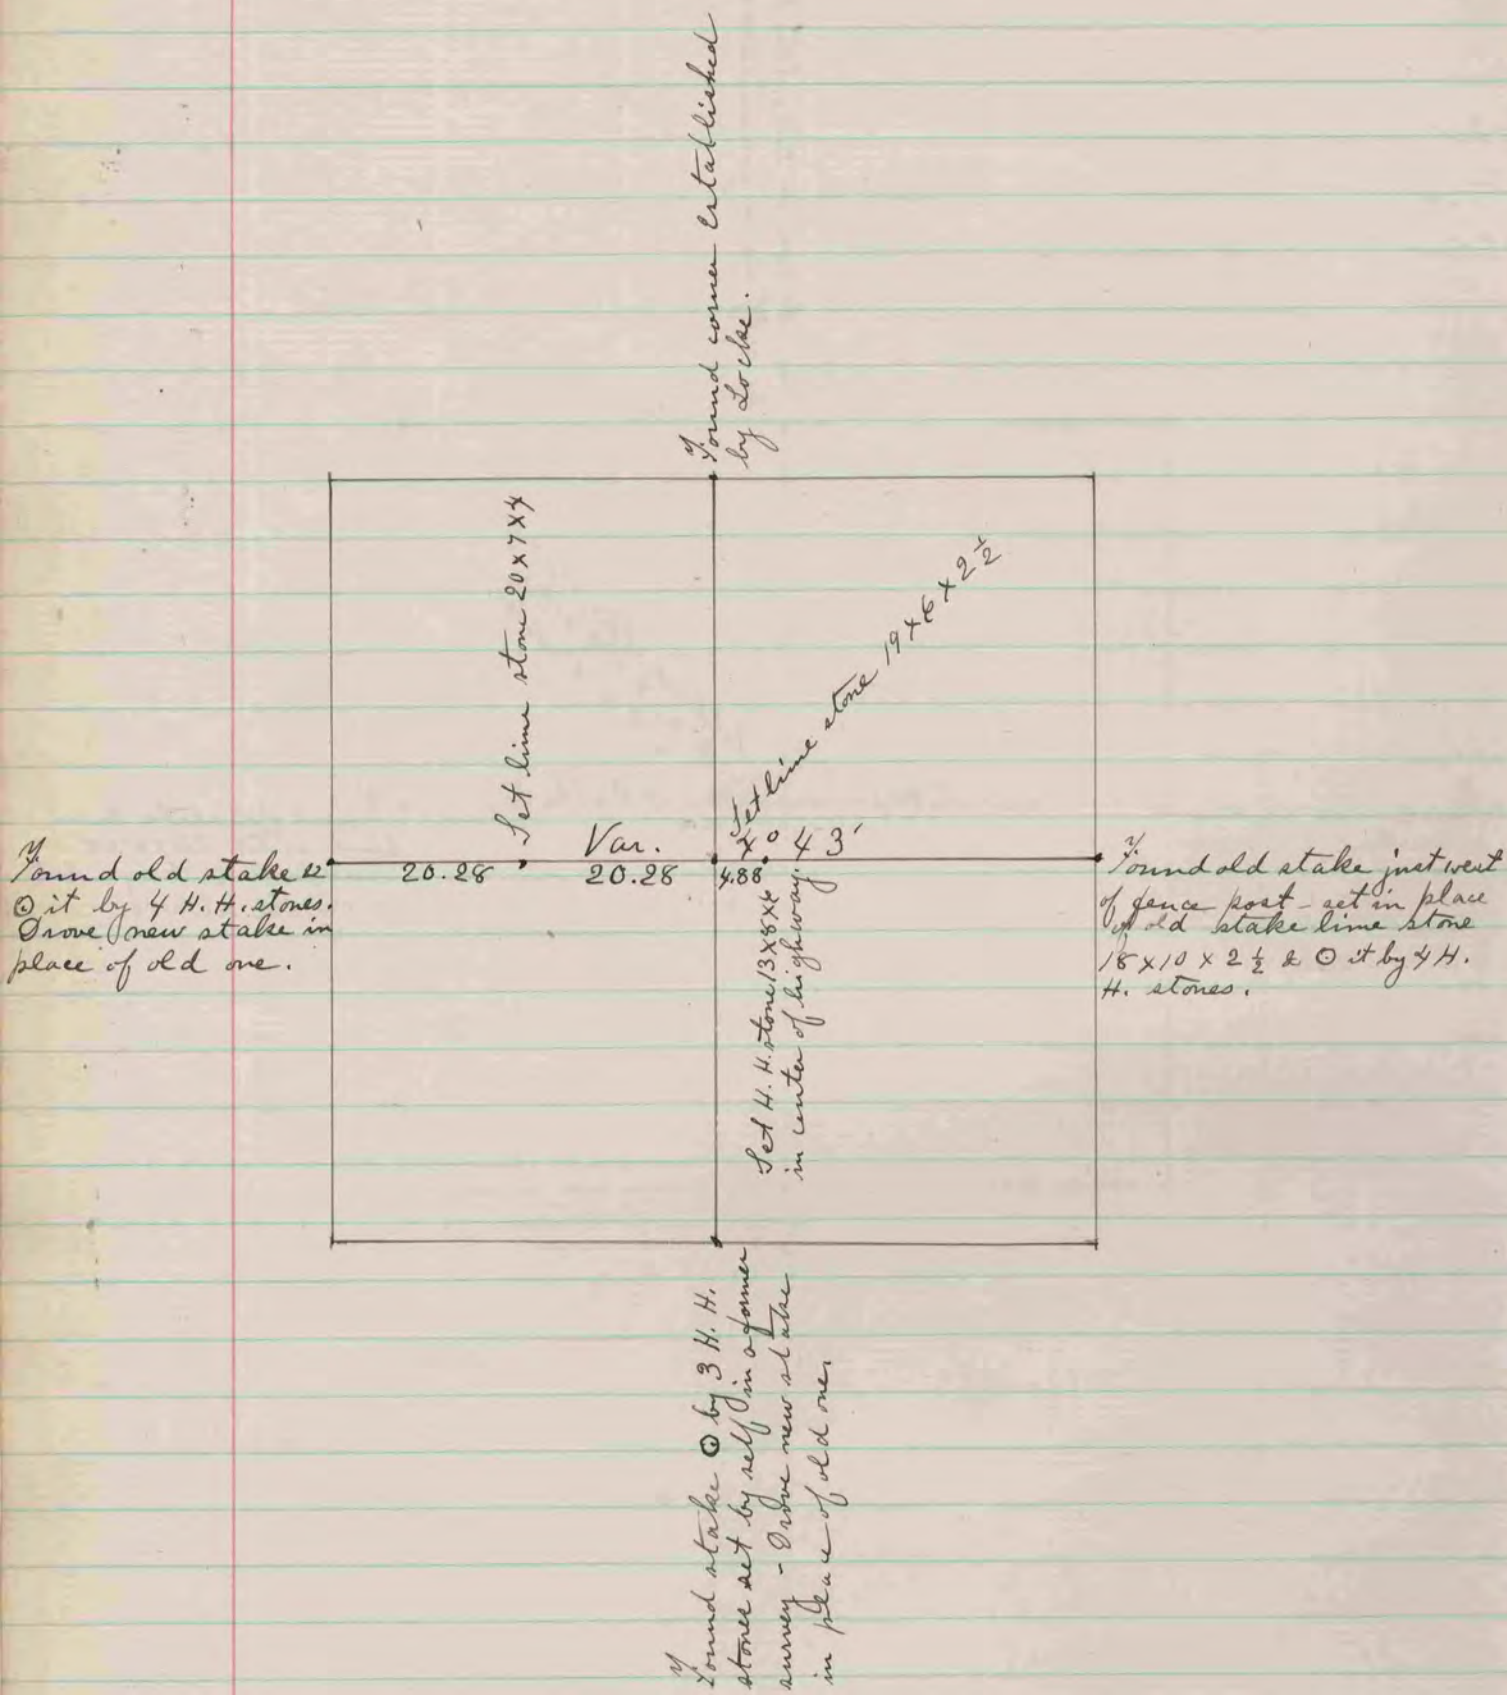 Found corner established
by Locke.
Set lime stone 20 x 7 x 4
Set lime stone 19 x 6 x 2 ½
Var. 4° 43'
Found old stake &
⊙ it by 4 H. H. stones.
Drove new stake in
place of old one.
20.28
20.28
4.88
Found old stake just west
of fence post - set in place
of old stake lime stone
18 x 10 x 2 ½ & ⊙ it by 4 H.
H. stones.
Set H. H. stone 13 x 8 x 4
in center of highway.
Found stake ⊙ by 3 H. H.
stones set by self in a former
survey - Drove new stake
in place of old one.